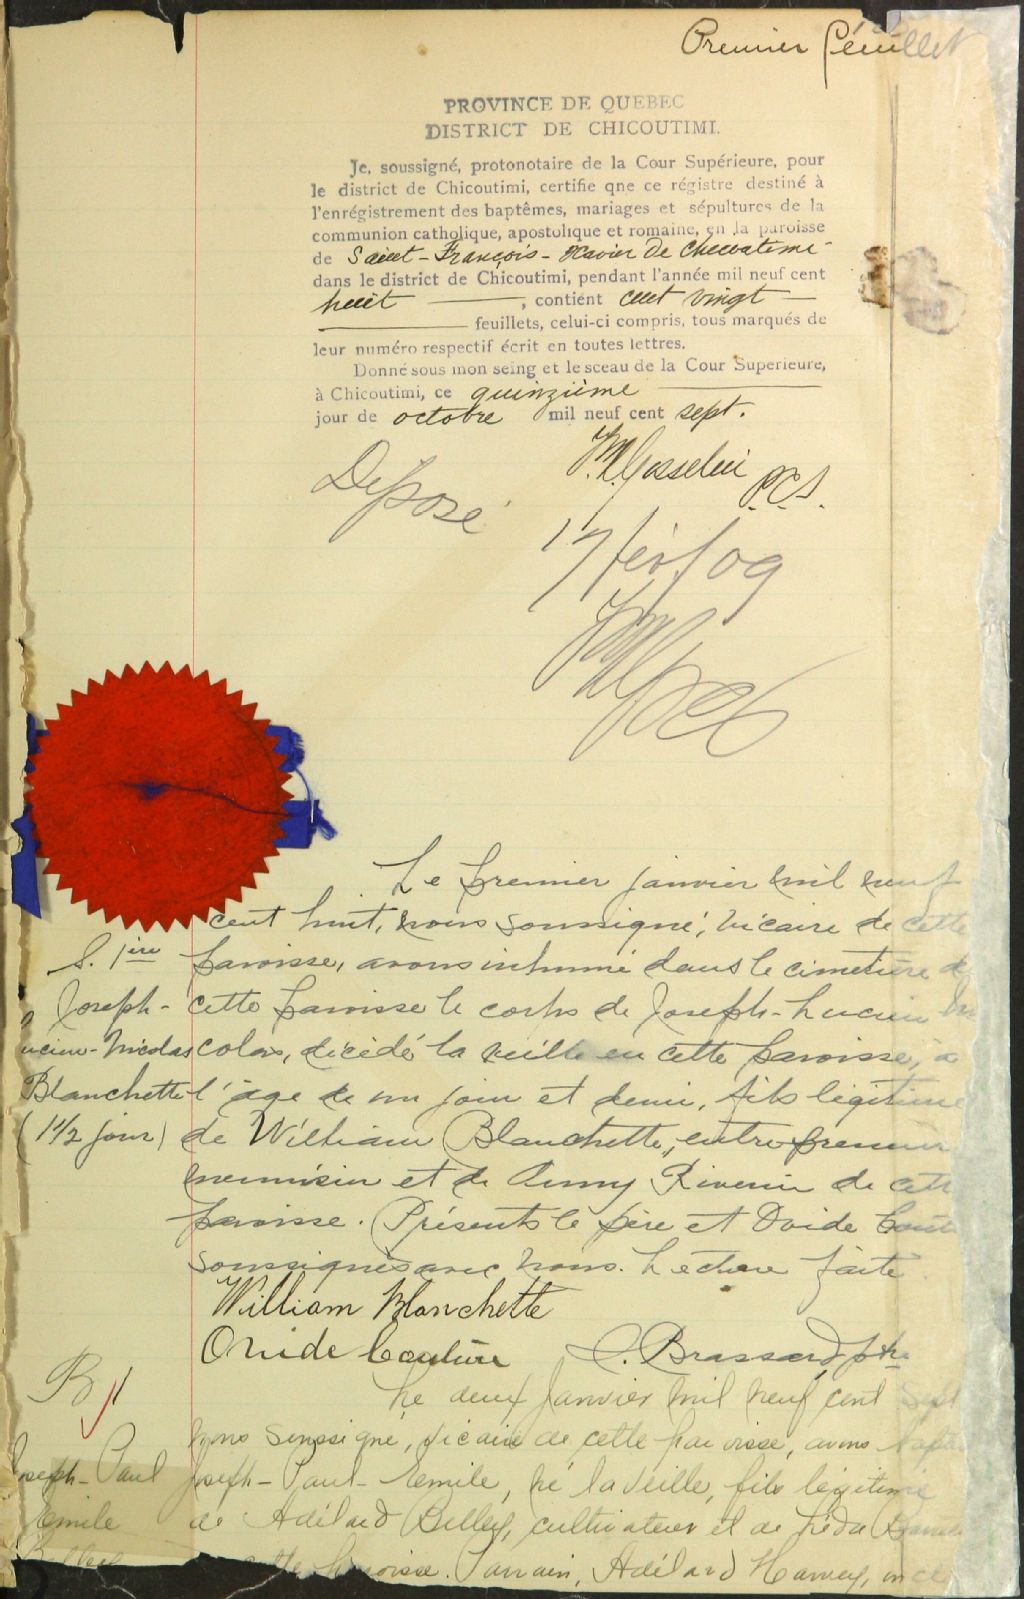 Premier feuillet
PROVINCE DE QUEBEC
DISTRICT DE CHICOUTIMI.
Je, soussigné, protonotaire de la Cour Supérieure, pour
le district de Chicoutimi, certifie qne ce régistre destiné à
l'enrégistrement des baptêmes, mariages et sépultures de la
communion catholique, apostolique et romaine, en la paroisse
de Saint-François-Xavier de Chicoutimi
dans le district de Chicoutimi, pendant l'année mil neuf cent
huit, contient cent vingt
feuillets, celui-ci compris, tous marqués de
leur numéro respectif écrit en toutes lettres.
Donné sous mon seing et le sceau de la Cour Superieure,
à Chicoutimi, ce quinzième
jour de octobre mil neuf cent sept.
Gosselin
P.C.S.
Déposé
17 fév 09
Le premier janvier mil neuf
cent huit, nous soussigné, vicaire de cette
S. 1ère paroisse, avons inhumé dans le cimetière de
Joseph- cette paroisse le corps de Joseph-Lucien Ni
ucien-Nicolas colas, décédé la veille en cette paroisse, à
Blanchette l'âge de un jour et demi, fils légitime
(1 1/2 jour) de William Blanchette, entrepreneur
menuisier et de Anny Riverin de cette
paroisse. Présents le père et Ovide Coutu
soussignés avec nous. Lecture faite
William Blanchette
Ovide Couture
C. Brassard, ptre
B 1
Le deux Janvier mil neuf cent sept
nous soussigné, vicaire de cette paroisse, avons bapti
Joseph-Paul Joseph-Paul-Emile, né la veille, fils légitime
Emile de Adélard Belley, cultivateur et de
Belley cette paroisse. Parrain, Adélard Harvey, oncle